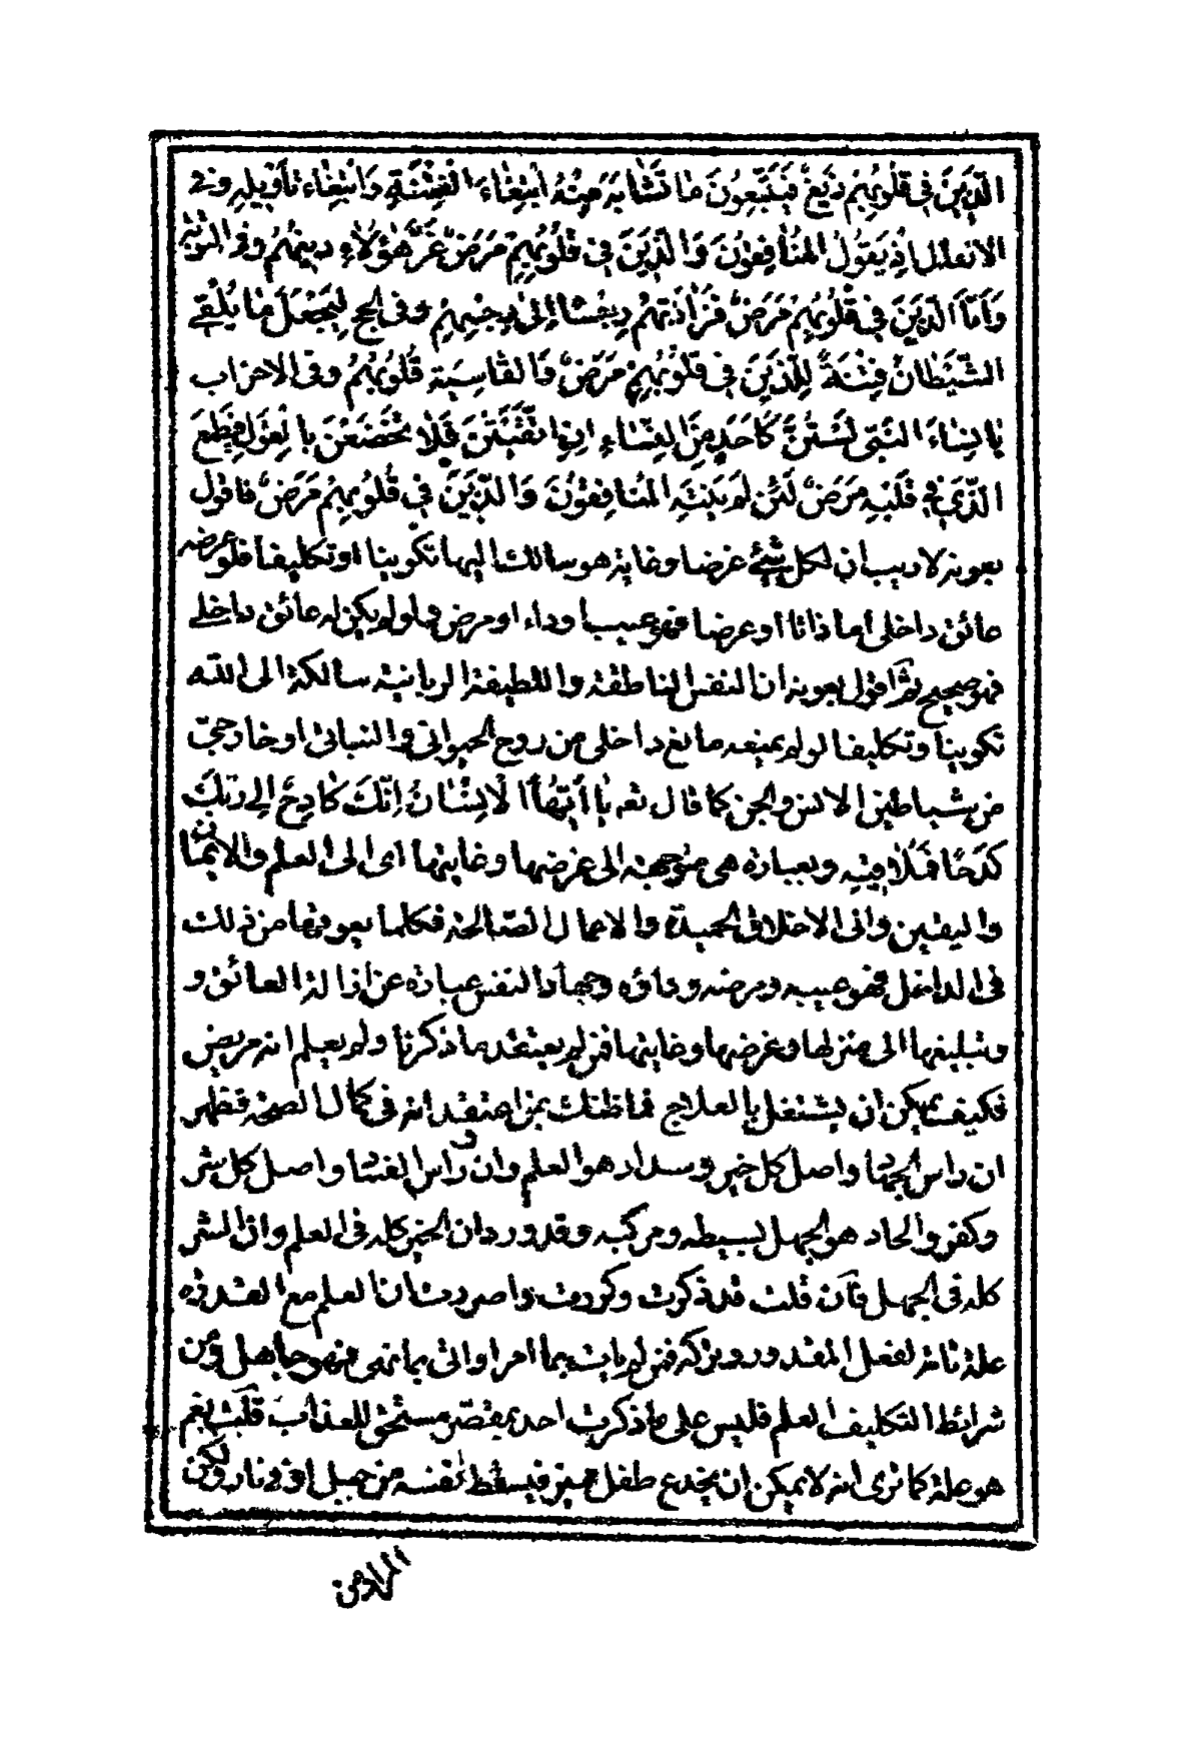 الَّذِينَ فِي قُلُوبِهِمْ زَيْغٌ فَيَتَّبِعُونَ مَا تَشَابَهَ مِنْهُ ابْتِغَاءَ الْفِتْنَةِ وَابْتِغَاءَ تَأْوِيلِهِ وفي
الانفال اِذْ يَقُولُ الْمُنَافِقُونَ وَالَّذِينَ فِي قُلُوبِهِمْ مَرَضٌ غَرَّ هٰؤُلَاءِ دِينُهُمْ وفى التوبة
وَاَمَّا الَّذِينَ فِي قُلُوبِهِمْ مَرَضٌ فَزَادَتْهُمْ رِجْسًا اِلَىٰ رِجْسِهِمْ وفى الحج لِيَجْعَلَ مَا يُلْقِي
الشَّيْطَانُ فِتْنَةً لِلَّذِينَ فِي قُلُوبِهِمْ مَرَضٌ وَالْقَاسِيَةِ قُلُوبُهُمْ وفى الاحزاب
يَا نِسَاءَ النَّبِيِّ لَسْتُنَّ كَاَحَدٍ مِنَ النِّسَاءِ اِنِ اتَّقَيْتُنَّ فَلَا تَخْضَعْنَ بِالْقَوْلِ فَيَطْمَعَ
الَّذِي فِي قَلْبِهِ مَرَضٌ لَئِنْ لَمْ يَنْتَهِ الْمُنَافِقُونَ وَالَّذِينَ فِي قُلُوبِهِمْ مَرَضٌ فاقول
بعونه لا ريب ان لكل شئ غرضا وغاية هو سالك اليها تكوينا او تكليفا فلو عرضه
عائق داخلى اما ذاتا او عرضا فهو عيب وداء او مرض ولو لم يكن له عائق داخلي
فهو صحيح ثم اقول بعونه ان النفس الناطقة واللطيفة الربانية سالكة الى الله
تكوينا وتكليفا لو لم يمنعه مانع داخلى من روح الحيوانى والنباتى او خارجى
من شياطين الانس والجن كما قال تعه يَا اَيُّهَا الْاِنْسَانُ اِنَّكَ كَادِحٌ اِلَى رَبِّكَ
كَدْحًا فَمُلَاقِيهِ وبعبارة هى متوجهة الى غرضها وغايتها اى الى العلم والايمان
واليقين والى الاخلاق الحميدة والاعمال الصالحة فكلما يعوقها من ذلك
فى الداخل فهو عيبه ومرضه وداؤه وجهاد النفس عبارة عن ازالة العائق و
تبليغها الى منزلها وغرضها وغايتها فمن لم يعتقد ما ذكرنا ولم يعلم انه مريض
فكيف يمكن ان يشتغل بالعلاج فما ظنك بمن اعتقد انه فى كمال الصحة فظهر
ان راس الجهاد واصل كل خير وسداد هو العلم وان راس الفساد واصل كل شر
وكفر والحاد هو الجهل بسيطه ومركبه وقد ورد ان الخير كله فى العلم وان الشر
كله فى الجهل فان قلت قد ذكرت وكررت واصررت ان العلم مع القدرة
علة تامة لفعل المقدور وتركه فمن لم يات بما امر او اتى بما نهى فهو جاهل ومن
شرائط التكليف العلم فليس على ما ذكرت احد مقصر مستحق للعذاب قلت نعم
هو علة كما ترى انه لا يمكن ان يخدع طفل مميز فيسقط نفسه من جبل او فى نار ولكن
المراد من